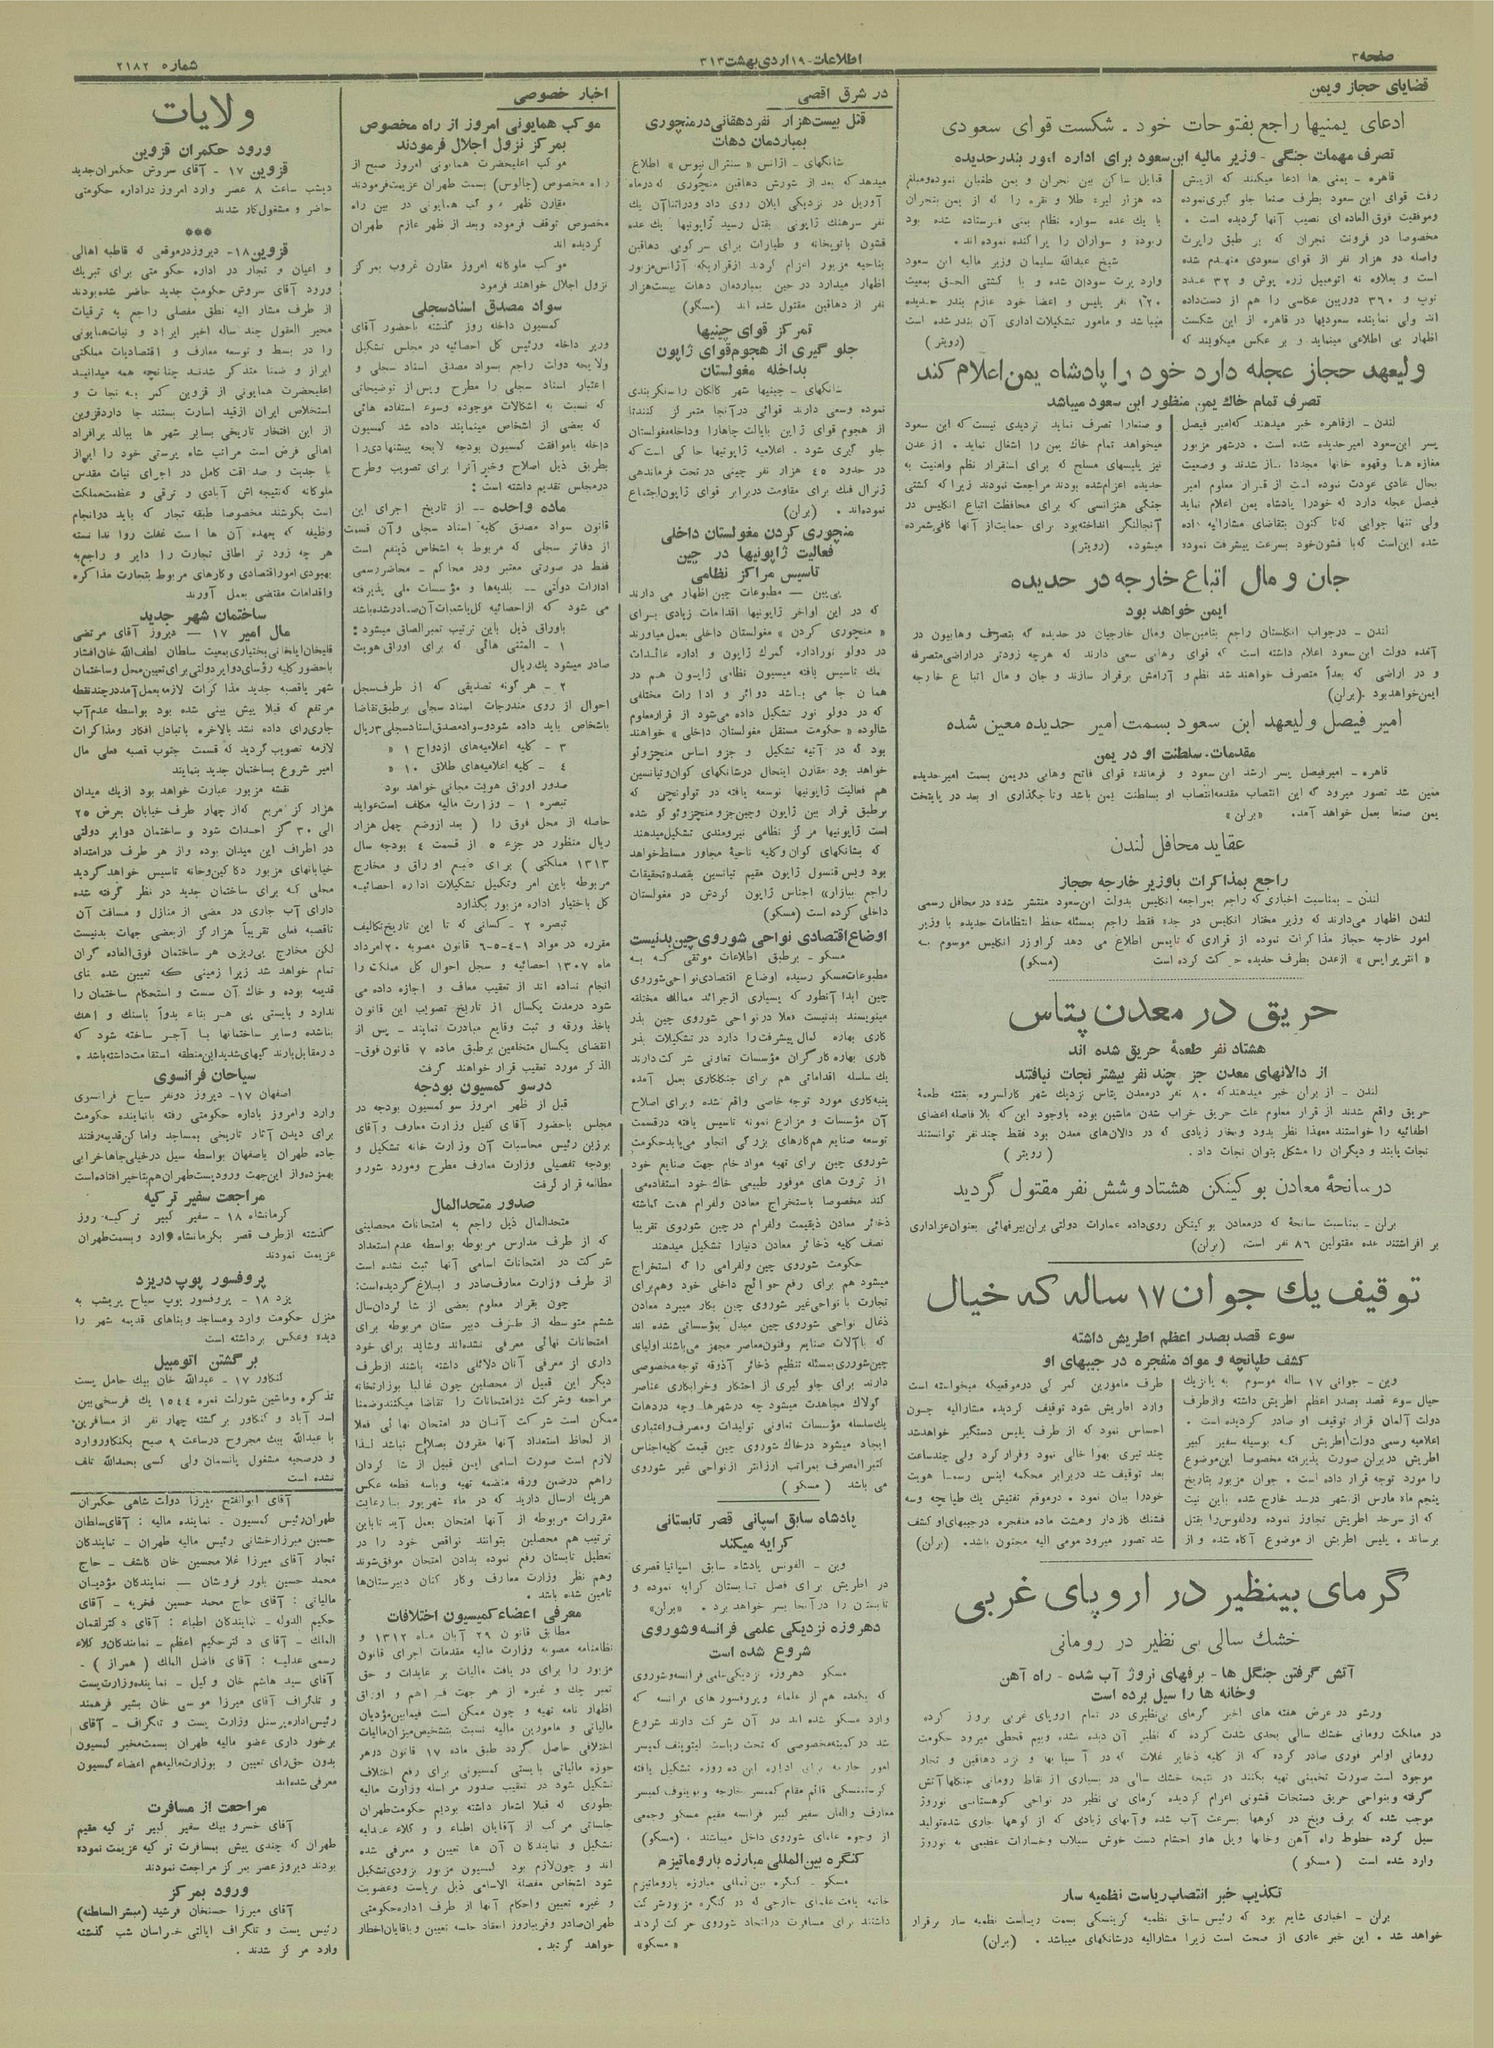 صفحه۳
اطلاعات-۱۹ اردی بهشت۳۱۳
شماره ۲۱۸۲
قضایای حجاز ویمن
ادعای یمنیها راجع بفتوحات خود . شکست قوای سعودی
تصرف مهمات جنگی - وزیر مالیه ابن سعود برای اداره امور بندرحدیده
قاهره - یمنی ها ادعا میکنند که ازپیش
رفت قوای ابن سعود بطرف صنعا جلو گیری‌نموده
وموفقیت فوق‌العاده‌ای نصیب آنها گردیده است .
مخصوصا در فرونت نجران که بر طبق راپرت
واصله دو هزار نفر از قوای سعودی منهدم شده
است و بعلاوه نه اتومبیل زره پوش و ۳۲ عدد
توپ و ۳۶۰ دوربین عکاسی را هم از دست‌داده
اند ولی نماینده سعودیها در قاهره از این شکست
اظهار بی اطلاعی مینماید و بر عکس میگویند که
قبایل ساکن بین نجران و یمن طغیان نموده‌ومبلغ
ده هزار لیره طلا و نقره را که از یمن بنجران
با یک عده سواره نظام یمنی فرستاده شده بود
ربوده و سواران را پراکنده نموده اند .
شیخ عبدالله سلیمان وزیر مالیه ابن سعود
وارد پرت سودان شده و با کشتی الحق بمعیت
۱۲۰ نفر پلیس و اعضا خود عازم بندر حدیده
میباشد و مامور تشکیلات اداری آن بندر شده است
(رویتر)
ولیعهد حجاز عجله دارد خود را پادشاه یمن اعلام کند
تصرف تمام خاک یمن منظور ابن سعود میباشد
لندن - ازقاهره خبر میدهند که‌امیر فیصل
پسر ابن‌سعود امیرحدیده شده است . درشهر مزبور
مغازه ها وقهوه خانها مجددا باز شدند و وضعیت
بحال عادی عودت نموده است از قرار معلوم امیر
فیصل عجله دارد که‌خودرا پادشاه یمن اعلام نماید
ولی تنها جوابی که‌تا کنون بتقاضای مشارالیه داده
شده این‌است که‌با قشون‌خود بسرعت پیشرفت نموده
و صنعارا تصرف نماید تردیدی نیست که ابن سعود
میخواهد تمام خاک یمن را اشغال نماید . از عدن
نیز پلیسهای مسلح که برای استقرار نظم وامنیت به
حدیده اعزام‌شده بودند مراجعت نمودند زیرا که کشتی
جنگی هنزانسی که برای محافظت اتباع انگلیس در
آنجالنگر انداخته‌بود برای حمایت‌از آنها کافی‌شمرده
میشود. (رویتر)
جان و مال اتباع خارجه در حدیده
ایمن خواهد بود
لندن - درجواب انگلستان راجع بتامین‌جان ومال خارجیان در حدیده که بتصرف وهابیون در
آمده دولت ابن سعود اعلام داشته است که قوای وهابی سعی دارند که هرچه زودتر دراراضی‌متصرفه
و در اراضی که بعداً متصرف خواهند شد نظم و آرامش برقرار سازند و جان و مال اتباع خارجه
ایمن‌خواهدبود .(برلن)
امیر فیصل ولیعهد ابن سعود بسمت امیر حدیده معین شده
مقدمات سلطنت او در یمن
قاهره - امیرفیصل پسر ارشد ابن سعود و فرمانده قوای فاتح وهابی دریمن بسمت امیرحدیده
معین شد تصور میرود که این انتصاب مقدمه‌انتصاب او بسلطنت یمن باشد وتاجگذاری او بعد در پایتخت
یمن صنعا بعمل خواهد آمد. «برلن»
عقاید محافل لندن
راجع بمذاکرات باوزیر خارجه حجاز
لندن - بمناسبت اخباری‌که راجع بمراجعه انگلیس بدولت ابن‌سعود منتشر شده در محافل رسمی
لندن اظهار می‌دارند که وزیر مختار انگلیس در جده فقط راجع بمسئله حفظ انتظامات حدیده با وزیر
امور خارجه حجاز مذاکرات نموده از قراری که تایمس اطلاع می دهد کراوزر انگلیس موسوم به
« انترپرایس » ازعدن بطرف حدیده حرکت کرده است (مسکو)
حریق در معدن پتاس
هشتاد نفر طعمهٔ حریق شده اند
از دالانهای معدن جز چند نفر بیشتر نجات نیافتند
لندن - از برلن خبر میدهندکه ۸۰ نفر درمعدن پتاس نزدیک شهر کارلسروه بغتته طعمهٔ
حریق واقع شدند از قرار معلوم علت حریق خراب شدن ماشین بوده باوجود این که بلا فاصله اعضای
اطفائیه را خواستند معهذا نظر بدود وبخار زیادی که در دالان‌های معدن بود فقط چند نفر توانستند
نجات یابند و دیگران را مشکل بتوان نجات داد . ( رویتر )
در سانحهٔ معادن بو کینگن هشتاد وشش نفر مقتول گردید
برلن - بمناسبت سانحهٔ که درمعادن بو کینگن روی‌داده عمارات دولتی برلن‌بیرقهائی بعنوان‌عزاداری
بر افراشتند عده مقتولین ۸۶ نفر است. (برلن)
توقیف یک جوان ۱۷ ساله که خیال
سوء قصد بصدر اعظم اطریش داشته
کشف طپانچه و مواد منفجره در جیبهای او
وین - جوانی ۱۷ ساله موسوم به
خیال سوء قصد بصدر اعظم اطریش داشته وازطرف
دولت آلمان قرار توقیف او صادر گردیده است .
اعلامیه رسمی دولت اطریش که بوسیله سفیر کبیر
اطریش دربرلن صورت پذیرفته مخصوصا این‌موضوع
را مورد توجه قرار داده است . جوان مزبور بتاریخ
پنجم ماه مارس از شهر درسد خارج شده باین نیت
که از سرحد اطریش تجاوز نموده ودلفوس‌را بقتل
برساند. پلیس اطریش از موضوع آگاه شده و از
طرف مامورین گمرکی درموقعیکه میخواسته است
وارد اطریش شود توقیف گردیده مشارالیه چون
احساس نمود که از طرف پلیس دستگیر خواهدشد
چند تیری بهوا خالی نمود وفرارکرد ولی چندساعت
بعد توقیف شد دربرابر محکمه اینس رسما هویت
خودرا بیان نمود . درموقع تفتیش یک طپانچه وسه
فشنگ گازدار وهشت ماده منفجره درجیبهای‌او کشف
شد تصور میرود مومی الیه مجنون باشد. (برلن)
گرمای بینظیر در اروپای غربی
خشک سالی بی نظیر در رومانی
آتش گرفتن جنگل ها - برفهای نروژ آب شده - راه آهن
وخانه ها را سیل برده است
ورشو در عرض هفته های اخیر گرمای بی‌نظیری در تمام اروپای غربی بروز کرده
در مملکت رومانی خشک سالی بحدی شدت کرده که نظیر آن دیده نشده وبیم قحطی میرود حکومت
رومانی اوامر فوری صادر کرده که از کلیه ذخایر غلات که در آسیا بها و نزد دهاقین و تجار
موجود است صورت تخمینی تهیه بکنند در نتیجه خشک سالی در بسیاری از نقاط رومانی جنگلها آتش
گرفته وبنواحی حریق دستجات قشونی اعزام گردیده گرمای بی نظیر در نواحی کوهستانی نوروژ
موجب شده که برف ویخ در کوهها بسرعت آب شده وآبهای زیادی که از کوهها جاری شده‌تولید
سیل کرده خطوط راه آهن وخانها وپل هاو احشام دست خوش سیلاب وخسارات عظیمی به نوروژ
وارد شده است ( مسکو )
تکذیب خبر انتصاب ریاست نظمیه سار
برلن - اخباری شایع بود که رئیس سابق نظمیه کرینسکی بسمت ریاست نظمیه سار برقرار
خواهد شد . این خبر عاری از صحت است زیرا مشارالیه درشانگهای میباشد . (برلن)
در شرق اقصی
قتل بیست‌هزار نفر دهقانی درمنچوری
بمباردمان دهات
شانگهای - اژانس « سنترال نیوس » اطلاع
میدهد که بعد از شورش دهاقین منچوری که درماه
آوریل در نزدیکی ایلان روی داد ودراثناآن یک
نفر سرهنگ ژاپونی بقتل رسید ژاپونیها یک عده
قشون باتوپخانه و طیارات برای سرکوبی دهاقین
بناحیه مزبور اعزام کردند ازقراریکه آژانس‌مزبور
اظهار میدارد در حین بمباردمان دهات بیست‌هزار
نفر از دهاقین مقتول شده اند (مسکو)
تمرکز قوای چینیها
جلو گیری از هجوم قوای ژاپون
بداخله مغولستان
شانگهای - چینیها شهر کالگان را سنگربندی
نموده وسعی دارند قوائی درآنجا متمرکز کنندتا
از هجوم قوای ژاپن بایالت چاهارا وداخله‌مغولستان
جلو گیری شود . اعلامیه ژاپونیها حاکی است که
در حدود ۴۵ هزار نفر چینی در تحت فرماندهی
ژنرال فنک برای مقاومت دربرابر قوای ژاپون‌اجتماع
نموده‌اند . (برلن)
منچوری کردن مغولستان داخلی
فعالیت ژاپونیها در چین
تاسیس مراکز نظامی
پی‌پین - مطبوعات چین اظهار می دارند
که در این اواخر ژاپونیها اقدامات زیادی برای
« منچوری کردن » مغولستان داخلی بعمل میاورند
در دولو نوراداره گمرک ژاپون و اداره عائدات
نمک تاسیس یافته میسیون نظامی ژاپون هم در
همان جا می باشد دوائر و ادارات مختلفی
که در دولو نور تشکیل داده می‌شود از قرارمعلوم
شالوده « حکومت مستقل مغولستان داخلی » خواهند
بود که در آتیه تشکیل و جزو اساس منچوکوئو
خواهد بود مقارن اینحال درشانگهای کوان‌وتیانسین
هم فعالیت ژاپونیها توسعه یافته در تولونچن که
برطبق قرار بین ژاپون وچین‌جزو منچوئو کو شده
است ژاپونیها مرکز نظامی نیرومندی تشکیل‌میدهند
که بشانگهای کوان وکلیه ناحیهٔ مجاور مسلط‌خواهد
بود ویس قنسول ژاپون مقیم تیانسین بقصد«تحقیقات
راجع ببازار» اجناس ژاپون گردش در مغولستان
داخلی کرده است (مسکو)
اوضاع‌اقتصادی نواحی شوروی چین‌بدنیست
مسکو - برطبق اطلاعات موثقی که به
مطبوعات‌مسکو رسیده اوضاع اقتصادی‌نواحی‌شوروی
چین ابدا آنطور که بسیاری ازجرائد ممالک مختلفه
مینویسند بدنیست فعلا درنواحی شوروی چین بذر
کاری بهاره کمال پیشرفت‌را دارد در تشکیلات بذر
کاری بهاره کارگران مؤسسات تعاونی شرکت دارند
یک سلسله اقداماتی هم برای جنگلکاری بعمل آمده
پنبه‌کاری مورد توجه خاصی واقع شده وبرای اصلاح
آن مؤسسات و مزارع نمونه تاسیس یافته درقسمت
توسعه صنایع هم‌کارهای بزرگی انجام می‌یابدحکومت
شوروی چین برای تهیه مواد خام جهت صنایع خود
از ثروت های موفور طبیعی خاک خود استفاده‌می
کند مخصوصا باستخراج معادن ولفرام همت گماشته
ذخائر معادن ذیقیمت ولفرام درچین شوروی تقریبا
نصف کلیه ذخائر معادن دنیارا تشکیل میدهند
حکومت شوروی چین ولفرامی را که استخراج
میشود هم برای رفع حوائج داخلی خود وهم‌برای
تجارت با نواحی‌غیر شوروی چین بکار میبرد معادن
ذغال نواحی شوروی چین مبدل بمؤسساتی شده اند
که باآلات صنایع وفنون‌معاصر مجهز می‌باشند اولیای
چین‌شوروی‌بمسئله تنظیم ذخائر آذوقه توجه مخصوصی
دارند برای جلو گیری از احتکار وخرابکاری عناصر
کولاک مجاهدت میشود چه درشهرها وچه دردهات
یک‌سلسله مؤسسات تعاونی تولیدات ومصرف‌واعتباری
ایجاد میشود درخاک شوروی چین قیمت کلیه‌اجناس
کثیرالمصرف بمراتب ارزانتر ازنواحی غیر شوروی
می باشد ( مسکو )
پادشاه سابق اسپانی قصر تابستانی
کرایه میکند
وین - الفونس پادشاه سابق اسپانیا قصری
در اطریش برای فصل تابستان کرایه نموده و
تابستان را درآنجا بسر خواهد برد . «برلن»
دهروزه نزدیکی علمی فرانسه وشوروی
شروع شده است
مسکو دهروزه نزدیکی‌علمی فرانسه‌وشوروی
که یکعده هم از علماء وپروفسورهای فرانسه که
وارد مسکو شده اند در آن شرکت دارند شروع
شد درکمیته‌مخصوصی که تحت ریاست لیتوینف کمیسر
امور خارجه برای اداره این ده روزه تشکیل یافته
کرستنسکی قائم مقام کمیسر خارجه و بوبنوف کمیسر
معارف والفان سفیر کبیر فرانسه مقیم مسکو وجمعی
از وجوه علمای شوروی داخل میباشند . (مسکو)
کنگره بین‌المللی مبارزه باروماتیزم
مسکو - کنگره بین‌المللی مبارزه باروماتیزم
خاتمه یافت علمای خارجی که در کنگره مزبور شرکت
داشتند برای مسافرت دراتحاد شوروی حرکت کردند
«مسکو»
اخبار خصوصی
موکب همایونی امروز از راه مخصوص
بمرکز نزول اجلال فرمودند
موکب اعلیحضرت همایونی امروز صبح از
راه مخصوص (چالوس) بسمت طهران عزیمت‌فرمودند
مقارن ظهر موکب همایونی در بین راه
مخصوص توقف فرموده وبعد از ظهر عازم طهران
گردیده اند
موکب ملوکانه امروز مقارن غروب بمرکز
نزول اجلال خواهند فرمود
سواد مصدق اسنادسجلی
کمیسیون داخله روز گذشته باحضور آقای
وزیر داخله ورئیس کل احصائیه در مجلس تشکیل
ولایحه دولت راجع بسواد مصدق اسناد سجلی و
اعتبار اسناد سجلی را مطرح وپس از توضیحاتی
که نسبت به اشکالات موجوده وسوء استفاده هائی
که بعضی از اشخاص مینمایند داده شد کمسیون
داخله باموافقت کمسیون بودجه لایحه پیشنهادی‌را
بطریق ذیل اصلاح وخبر آنرا برای تصویب وطرح
درمجلس تقدیم داشته است :
ماده واحده -- از تاریخ اجرای این
قانون سواد مصدق کلیه اسناد سجلی وآن قسمت
از دفاتر سجلی که مربوط به اشخاص ذینفع است
فقط در صورتی معتبر ودر محاکم - محاضررسمی
ادارات دولتی -- بلدیه‌ها و مؤسسات ملی پذیرفته
می شود که ازاحصائیه کل‌یاشعبات آن‌صادرشده‌باشد
باوراق ذیل باین ترتیب تمبرالصاق میشود :
۱ - المثنی هائی که برای اوراق هویت
صادر میشود یک‌ریال
۲ - هر گونه تصدیقی که از طرف‌سجل
احوال از روی مندرجات اسناد سجلی برطبق‌تقاضا
باشخاص باید داده شودوسوادمصدق‌اسنادسجلی۳ریال
۳ - کلیه اعلامیه‌های ازدواج ۱ «
۴ - کلیه اعلامیه‌های طلاق ۱۰ «
صدور اوراق هویت مجانی خواهد بود
تبصره ۱ - وزارت مالیه مکلف است‌عواید
حاصله از محل فوق را ( بعد ازوضع چهل هزار
ریال منظور در جزء ۵ از قسمت ۴ بودجه سال
۱۳۱۳ مملکتی ) برای طبع اوراق و مخارج
مربوطه باین امر وتکمیل تشکیلات اداره احصائیه
کل باختیار اداره مزبور بگذارد
تبصره ۲ - کسانی که تا این تاریخ‌تکالیف
مقرره در مواد ۱-۴-۵-۶ قانون مصوبه ۲۰امرداد
ماه ۱۳۰۷ احصائیه و سجل احوال کل مملکت را
انجام نداده اند از تعقیب معاف و اجازه داده می
شود درمدت یکسال از تاریخ تصویب این قانون
باخذ ورقه و ثبت وقایع مبادرت نمایند - پس از
انقضای یکسال متخلفین برطبق ماده ۷ قانون فوق-
الذکر مورد تعقیب قرار خواهند گرفت
درسو کمسیون بودجه
قبل از ظهر امروز سو کمسیون بودجه در
مجلس باحضور آقای کفیل وزارت معارف وآقای
برزین رئیس محاسبات آن وزارت خانه تشکیل و
بودجه تفصیلی وزارت معارف مطرح ومورد شور و
مطالعه قرار گرفت
صدور متحدالمال
متحدالمال ذیل راجع به امتحانات محصلینی
که از طرف مدارس مربوطه بواسطه عدم استعداد
شرکت در امتحانات اسامی آنها ثبت نشده است
از طرف وزارت معارف‌صادر و ابلاغ گردیده‌است:
چون بقرار معلوم بعضی از شا گردان‌سال
ششم متوسطه از طرف دبیر ستان مربوطه برای
امتحانات نهائی معرفی نشده‌اند وشاید برای خود
داری از معرفی آنان دلائلی داشته باشند ازطرف
دیگر این قبیل از محصلین چون غالبا بوزارتخانه
مراجعه وشرکت درامتحانات را تقاضا میکنندوضمنا
ممکن است شرکت آنان در امتحان نهائی فعلا
از لحاظ استعداد آنها مقرون بصلاح نباشد لذا
لازم است صورت اسامی این قبیل از شا گردان
راهم درضمن ورقه منضمه تهیه وباسه قطعه عکس
هریک ارسال دارید که در ماه شهریور بنارعایت
مقررات مربوطه از آنها امتحان بعمل آید تاباین
ترتیب هم محصلین بتوانند نواقص خود را در
تعطیل تابستان رفع نموده بدادن امتحان موفق‌شوند
وهم نظر وزارت معارف وکار کنان دبیرستان‌ها
تامین شده باشد .
معرفی اعضاء کمیسیون اختلافات
مطابق قانون ۲۹ آبان ماه ۱۳۱۲ و
نظامنامه مصوبه وزارت مالیه مقدمات اجرای قانون
مزبور را برای در یافت مالیات بر عایدات و حق
تمبر چک و غیره از هر جهت فراهم و اوراق
اظهار نامه تهیه و چون ممکن است فیمابین‌مؤدیان
مالیاتی و مامورین مالیه نسبت بتشخیص‌میزان‌مالیات
اختلافی حاصل گردد طبق ماده ۱۷ قانون درهر
حوزه مالیاتی بایستی کمسیونی برای رفع اختلاف
تشکیل شود در تعقیب صدور مراسله وزارت مالیه
بطوری که قبلا اشعار داشته بودیم حکومت‌طهران
جلساتی مرکب از آقایان اطباء و وکلاء عدلیه
تشکیل و نمایندگان آن ها تعیین و معرفی شده
اند و چون‌لازم بود کمسیون مزبور بزودی‌تشکیل
شود اشخاص مفصلة الاسامی ذیل بریاست وعضویت
و غیره تعیین واحکام آنها از طرف اداره‌حکومتی
طهران‌صادر وقریباروز انعقاد جلسه تعیین وباقایان‌اخطار
خواهد گردید.
ولایات
ورود حکمران قزوین
قزوین ۱۷ - آقای سروش حکمران‌جدید
دیشب ساعت ۸ عصر وارد امروز دراداره حکومتی
حاضر و مشغول‌کار شدند
***
قزوین ۱۸- دیروزدرموقعی که قاطبه اهالی
و اعیان و تجار در اداره حکومتی برای تبریک
ورود آقای سروش حکومت جدید حاضر شده‌بودند
از طرف مشار الیه نطق مفصلی راجع به ترقیات
محیر العقول چند ساله اخیر ایران و نیات‌همایونی
را در بسط و توسعه معارف و اقتصادیات مملکتی
ابراز و ضمنا متذکر شدند چنانچه همه میدانید
اعلیحضرت همایونی از قزوین کمر به نجات و
استخلاص ایران ازقید اسارت بستند جا داردقزوین
از این افتخار تاریخی بسایر شهر ها ببالد برافراد
اهالی فرض است مراتب شاه پرستی خود را ابراز
با جدیت و صداقت کامل در اجرای نیات مقدس
ملوکانه که‌نتیجه اش آبادی و ترقی و عظمت‌مملکت
است بکوشند مخصوصا طبقه تجار که باید درانجام
وظیفه که بعهده آن ها است غفلت روا ندانسته
هر چه زود تر اطاق تجارت را دایر و راجع‌به
بهبودی امور اقتصادی وکارهای مربوط بتجارت مذاکره
واقدامات مقتضی بعمل آورند
ساختمان شهر جدید
مال امیر ۱۷ - دیروز آقای مرتضی
قلیخان‌ایلخانی‌بختیاری‌بمعیت سلطان لطف‌الله خان‌افشار
باحضور کلیه رؤسای‌دوایر دولتی برای‌تعیین‌محل وساختمان
شهر یاقصبه جدید مذاکرات لازمه‌بعمل‌آمددرچندنقطه
مرتفع که قبلا پیش بینی شده بود بواسطه عدم‌آب
جاری‌رای داده نشد بالاخره باتبادل افکار ومذاکرات
لازمه تصویب گردید که قسمت جنوب قصبه فعلی مال
امیر شروع بساختمان جدید بنمایند
نقشه مزبور عبارت خواهد بود ازیک میدان
هزار گز مربع که‌از چهار طرف خیابان بعرض ۲۵
الی ۳۰ گز احداث شود و ساختمان دوایر دولتی
در اطراف این میدان بوده واز هر طرف درامتداد
خیابانهای مزبور دکاکین‌وخانه تاسیس خواهدگردید
محلی که برای ساختمان جدید در نظر گرفته شده
دارای آب جاری در مضی از منازل و مسافت آن
تاقصبه فعلی تقریباً هزارگز ازبعضی جهات بدنیست
لکن مخارج پی‌ریزی هر ساختمان فوق‌العاده گران
تمام خواهد شد زیرا زمینی که تعیین شده بنای
قدیمه بوده و خاک آن سست و استحکام ساختمان را
ندارد و بایستی پی هر بناء بدواً باسنگ و اهک
بناشده وسایر ساختمانها با آجر ساخته شود که
درمقابل‌بارند گیهای‌شدیداین‌منطقه استقامت‌داشته‌باشد .
سیاحان فرانسوی
اصفهان ۱۷- دیروز دونفر سیاح فرانسوی
وارد وامروز باداره حکومتی رفته بانماینده حکومت
برای دیدن آثار تاریخی بمساجد واماکن‌قدیمه‌رفتند
جاده طهران باصفهان بواسطه سیل درخیلی‌جاهاخرابی
بهمزده‌واز این‌جهت ورودپست‌طهران‌هم‌بتاخیر افتاده‌است
مراجعت سفیر ترکیه
کرمانشاه ۱۸ - سفیر کبیر ترکیه روز
گذشته ازطرف قصر بکرمانشاه وارد وبسمت‌طهران
عزیمت نمودند
پروفسور پوپ دریزد
یزد ۱۸ - پروفسور پوپ سیاح پریشب به
منزل حکومت وارد ومساجد وبناهای قدیمه شهر را
دیده وعکس برداشته است
برگشتن اتومبیل
کنگاور ۱۷ - عبدالله خان بیک حامل پست
تذکره وماشین شورلت نمره ۱۵۴۴ یک فرسخی‌بین
اسد آباد و کنگاور برگشته چهار نفر از مسافرین
با عبدالله بیک مجروح درساعت ۹ صبح بکنگاوروارد
و درصحیه مشغول پانسمان ولی کسی بحمدالله تلف
نشده است
آقای ابوالفتح میرزا دولت شاهی حکمران
طهران‌رئیس کمسیون . نماینده مالیه : آقای‌سلطان
حسین میرزارخشانی رئیس مالیه طهران - نمایندگان
تجار آقای میرزا غلا محسین خان کاشف - حاج
محمد حسین بلور فروشان - نمایندگان مؤدیان
مالیاتی : آقای حاج محمد حسین فخریه - آقای
حکیم الدوله - نمایندگان اطباء : آقای دکترلقمان
الملک - آقای دکترحکیم اعظم - نمایندگان‌وکلاء
رسمی عدلیه : آقای فاضل الملک ( همراز ) -
آقای سید هاشم خان وکیل - نماینده‌وزارت‌پست
و تلگراف آقای میرزا موسی خان بشیر فرهمند
رئیس‌اداره‌پرسنل وزارت پست و تلگراف - آقای
برخور داری عضو مالیه طهران بسمت‌مخبر کمسیون
بدون حق‌رای تعیین و بوزارت‌مالیه‌هم اعضاءکمسیون
معرفی شده‌اند
مراجعت از مسافرت
آقای خسرو بیک سفیر کبیر تر کیه مقیم
طهران که چندی پیش بمسافرت تر کیه عزیمت نموده
بودند دیروز عصر بمرکز مراجعت نمودند
ورود بمرکز
آقای میرزا حسنخان فرشید (مبشرالسلطنه)
رئیس پست و تلگراف ایالتی خراسان شب گذشته
وارد مرکز شدند .